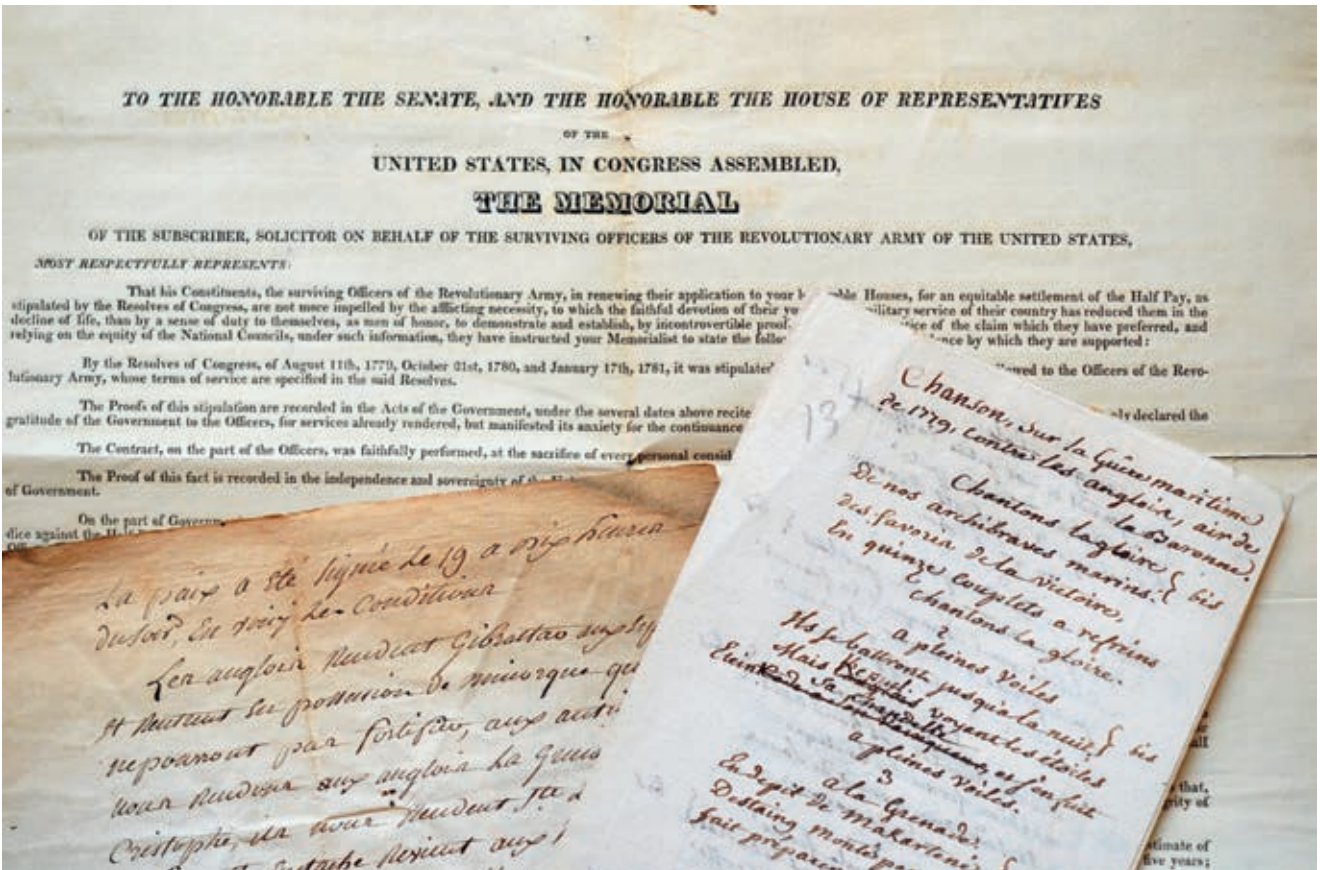 TO THE HONORABLE THE SENATE, AND THE HONORABLE THE HOUSE OF REPRESENTATIVES
OF THE
UNITED STATES, IN CONGRESS ASSEMBLED,
THE MEMORIAL
OF THE SUBSCRIBER, SOLICITOR ON BEHALF OF THE SURVIVING OFFICERS OF THE REVOLUTIONARY ARMY OF THE UNITED STATES,
MOST RESPECTFULLY REPRESENTS:
That his Constituents, the surviving Officers of the Revolutionary Army, in renewing their application to your Houses, for an equitable settlement of the Half Pay, as
stipulated by the Resolves of Congress, are not more impelled by the afflicting necessity, to which the faithful devotion of their military service of their country has reduced them in the
decline of life, than by a sense of duty to themselves, as men of honor, to demonstrate and establish, by incontrovertible proof, of the claim which they have preferred, and
relying on the equity of the National Councils, under such information, they have instructed your Memorialist to state the by which they are supported:
By the Resolves of Congress, of August 11th, 1779, October 21st, 1780, and January 17th, 1781, it was stipulated to the Officers of the Revo-
lutionary Army, whose terms of service are specified in the said Resolves.
The Proofs of this stipulation are recorded in the Acts of the Government, under the several dates above declared the
gratitude of the Government to the Officers, for services already rendered, but manifested its anxiety for the continuance
The Contract, on the part of the Officers, was faithfully performed, at the sacrifice of every personal
The Proof of this fact is recorded in the independence and sovereignty of
of Government.
On the part of
dice against the
that,
five years;
La paix a été signée le 19 a dix heures
du soir, En voicy les Conditions
Les anglois Rendent Gibraltar aux
Et Rentrent En possession de minorque
ne pourront pas fortifier, aux
nous Rendons aux anglois La
Cristophe, ils nous Rendent Ste
Revient aux
13
Chanson, sur la Guere maritime
de 1779, contre les anglois, air de
la Baronne.
Chantons la gloire
De nos archibraves marins. } bis
des favoris de la victoire,
En quinze couplets a refrains
Chantons la gloire.
2
a pleines voiles
Ils se battront jusqu'a la nuit } bis
Mais voyant les étoiles
et s'en fuit
a pleines voiles.
3
a la Grenade
En depit de
Destaing monte
fait